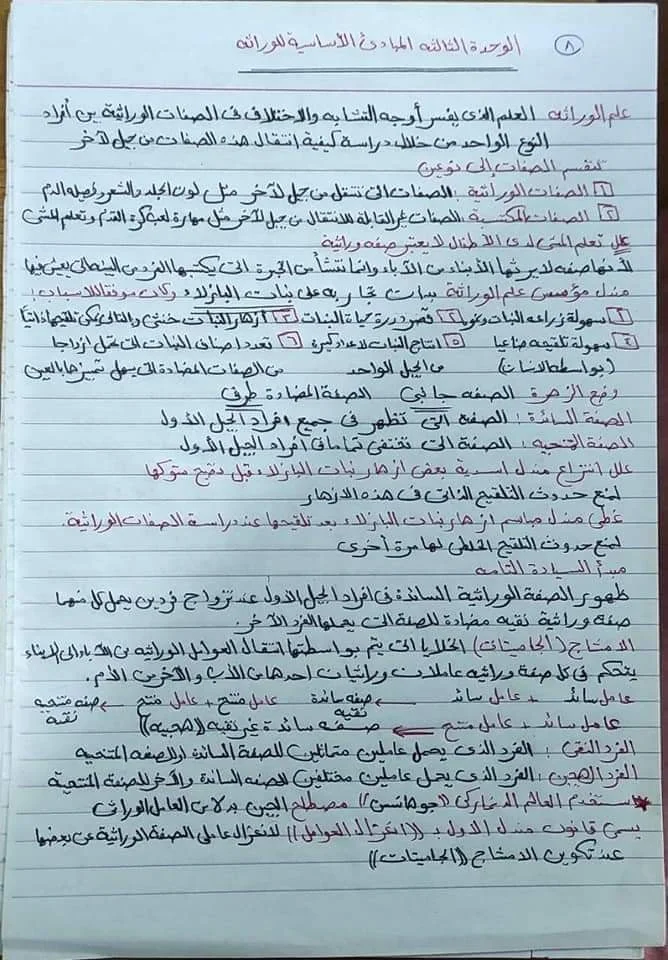 ٨
الوحدة الثالثه المبادئ الأساسية للوراثه
علم الوراثه العلم الذى يفسر أوجه التشابه والاختلاف فى الصفات الوراثية بين أفراد
النوع الواحد من خلال دراسة كيفية انتقال هذه الصفات من جيل لآخر
تنقسم الصفات إلى نوعين
١ الصفات الوراثية : الصفات التى تنتقل من جيل لآخر مثل لون الجلد والشعر وفصيله الدم
٢ الصفات المكتسبة : الصفات غير القابلة للانتقال من جيل لآخر مثل مهارة لعب كرة القدم وتعلم المشى
علل تعلم المشى لدى الأطفال لا يعتبر صفه وراثية
لأنها صفه لا يرثها الأبناء من الآباء وانما تنشأ من الخبرة التى يكتسبها الفرد من البيئه التى يعيش فيها
مندل مؤسس علم الوراثة بدأت تجاربه على نبات البازلاء وكان موفقا للاسباب :
١ سهولة زراعه النبات ونموه ٢ قصر دورة حياة النبات ٣ أزهار النبات خنثى وبالتالى يمكن تلقيحها ذاتيًا
٤ سهولة تلقيحه صناعيا ٥ انتاج النبات لاعداد كبيرة ٦ تعدد اصناف النبات التى تحمل ازواجا
(بواسطه الانسان) من الجيل الواحد من الصفات المضادة التى يسهل تمييزها بالعين
وضع الزهرة الصفه جانبى الصفة المضادة طرفى
الصفة السائدة : الصفه التى تظهر فى جميع افراد الجيل الأول
الصفة المتنحيه : الصفة التى تختفى تماما فى افراد الجيل الأول
علل انتزاع مندل اسدية بعض ازهار نبات البازلاء قبل نضج متوكها
لمنع حدوث التلقيح الذاتى فى هذه الازهار
غطى مندل مياسم ازهار نبات البازلاء بعد تلقيحها عند دراسة الصفات الوراثية.
لمنع حدوث التلقيح الخلطى لها مرة أخرى
مبدأ السيادة التامه
ظهور الصفة الوراثية السائدة فى افراد الجيل الأول عند تزاوج فردين يحمل كل منهما
صفة وراثية نقيه مضادة للصفة التى يحملها الفرد الآخر.
الامشاج (الجاميتات) الخلايا التى يتم بواسطتها انتقال العوامل الوراثيه من الآباء الى الابناء
يتحكم فى كل صفة وراثيه عاملان وراثيان احدهما من الأب والآخر من الأم.
عامل سائد + عامل سائد ← صفه سائدة نقيه عامل متنح + عامل متنح ← صفه متنحيه نقية
عامل سائد + عامل متنح ← صفه سائدة غير نقيه ((هجينه))
الفرد النقى : الفرد الذى يحمل عاملين متماثلين للصفة السائدة او الصفه المتنحيه
الفرد الهجين : الفرد الذى يحمل عاملين مختلفين للصفه السائدة والآخر للصفة المتنحية
* استخدم العالم الدنماركى ((جوهانسن)) مصطلح الجين بدلا من العامل الوراثى
يسمى قانون مندل الأول بـ ((انعزال العوامل)) لانعزال عاملى الصفة الوراثية عن بعضها
عند تكوين الامشاج ((الجاميتات))